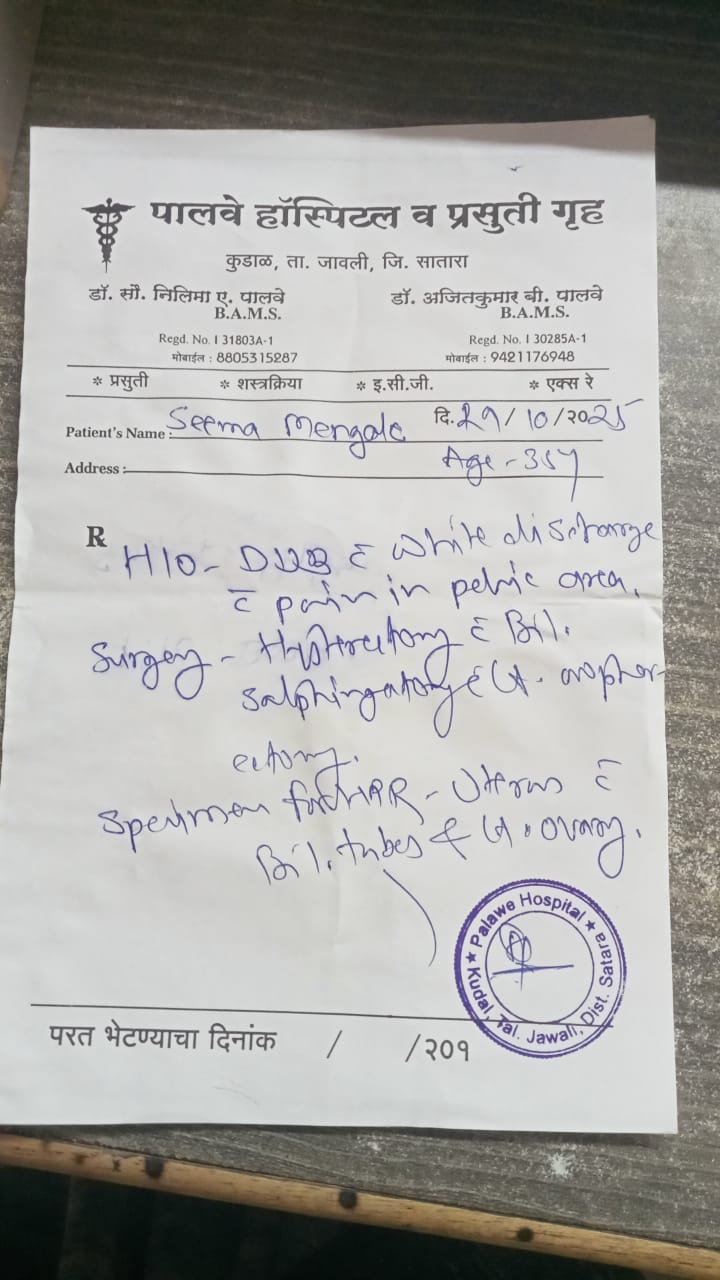 पालवे हॉस्पिटल व प्रसुती गृह
कुडाळ, ता. जावली, जि. सातारा
डॉ. सौ. निलिमा ए. पालवे डॉ. अजितकुमार बी. पालवे
B.A.M.S. B.A.M.S.
Regd. No. I 31803A-1 Regd. No. I 30285A-1
मोबाईल : 8805315287 मोबाईल : 9421176948
* प्रसुती * शस्त्रक्रिया * इ.सी.जी. * एक्स रे
Patient's Name : Seema Mengale दि. 29/10/२०25
Address : Age - 35y
R
H/O - DUB c̄ white discharge
c̄ pain in pelvic area.
Surgery - c̄ Bil.
c̄
ectomy.
Specimen for HPR - Uterus c̄
Bil. tubes & ovary.
★ Palawe Hospital ★
Kudal, Tal. Jawali, Dist. Satara
परत भेटण्याचा दिनांक / /२०१